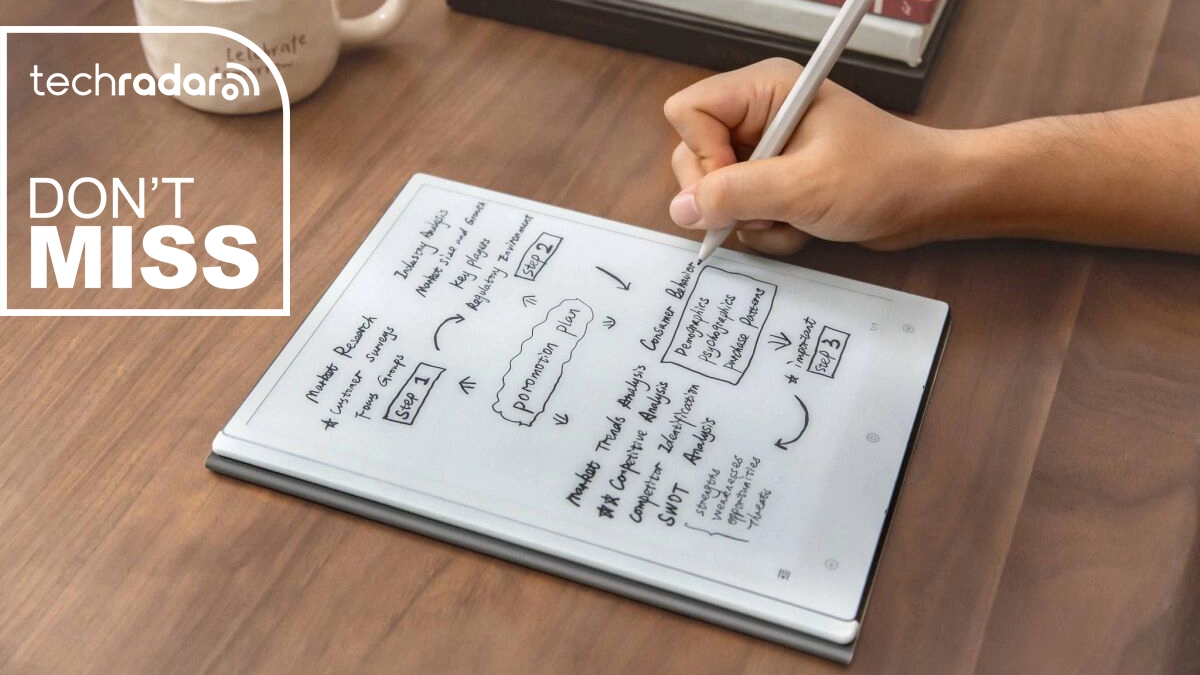 techradar
DON'T
MISS
Celebrate
Industry Analysis
Market size and Growth
Key players
Regulatory Environment
Step 2
Market Research
★ Customer surveys
Focus Groups
Step 1
poromotion plan
Consumer Behavior
Demographics
Psychographics
Purchase Patterns
★ important
Step 3
Market Trends Analysis
★★ Competitive Analysis
Competitor Identification
SWOT Analysis
strengths
weaknesses
opportunities
Threats
1/1